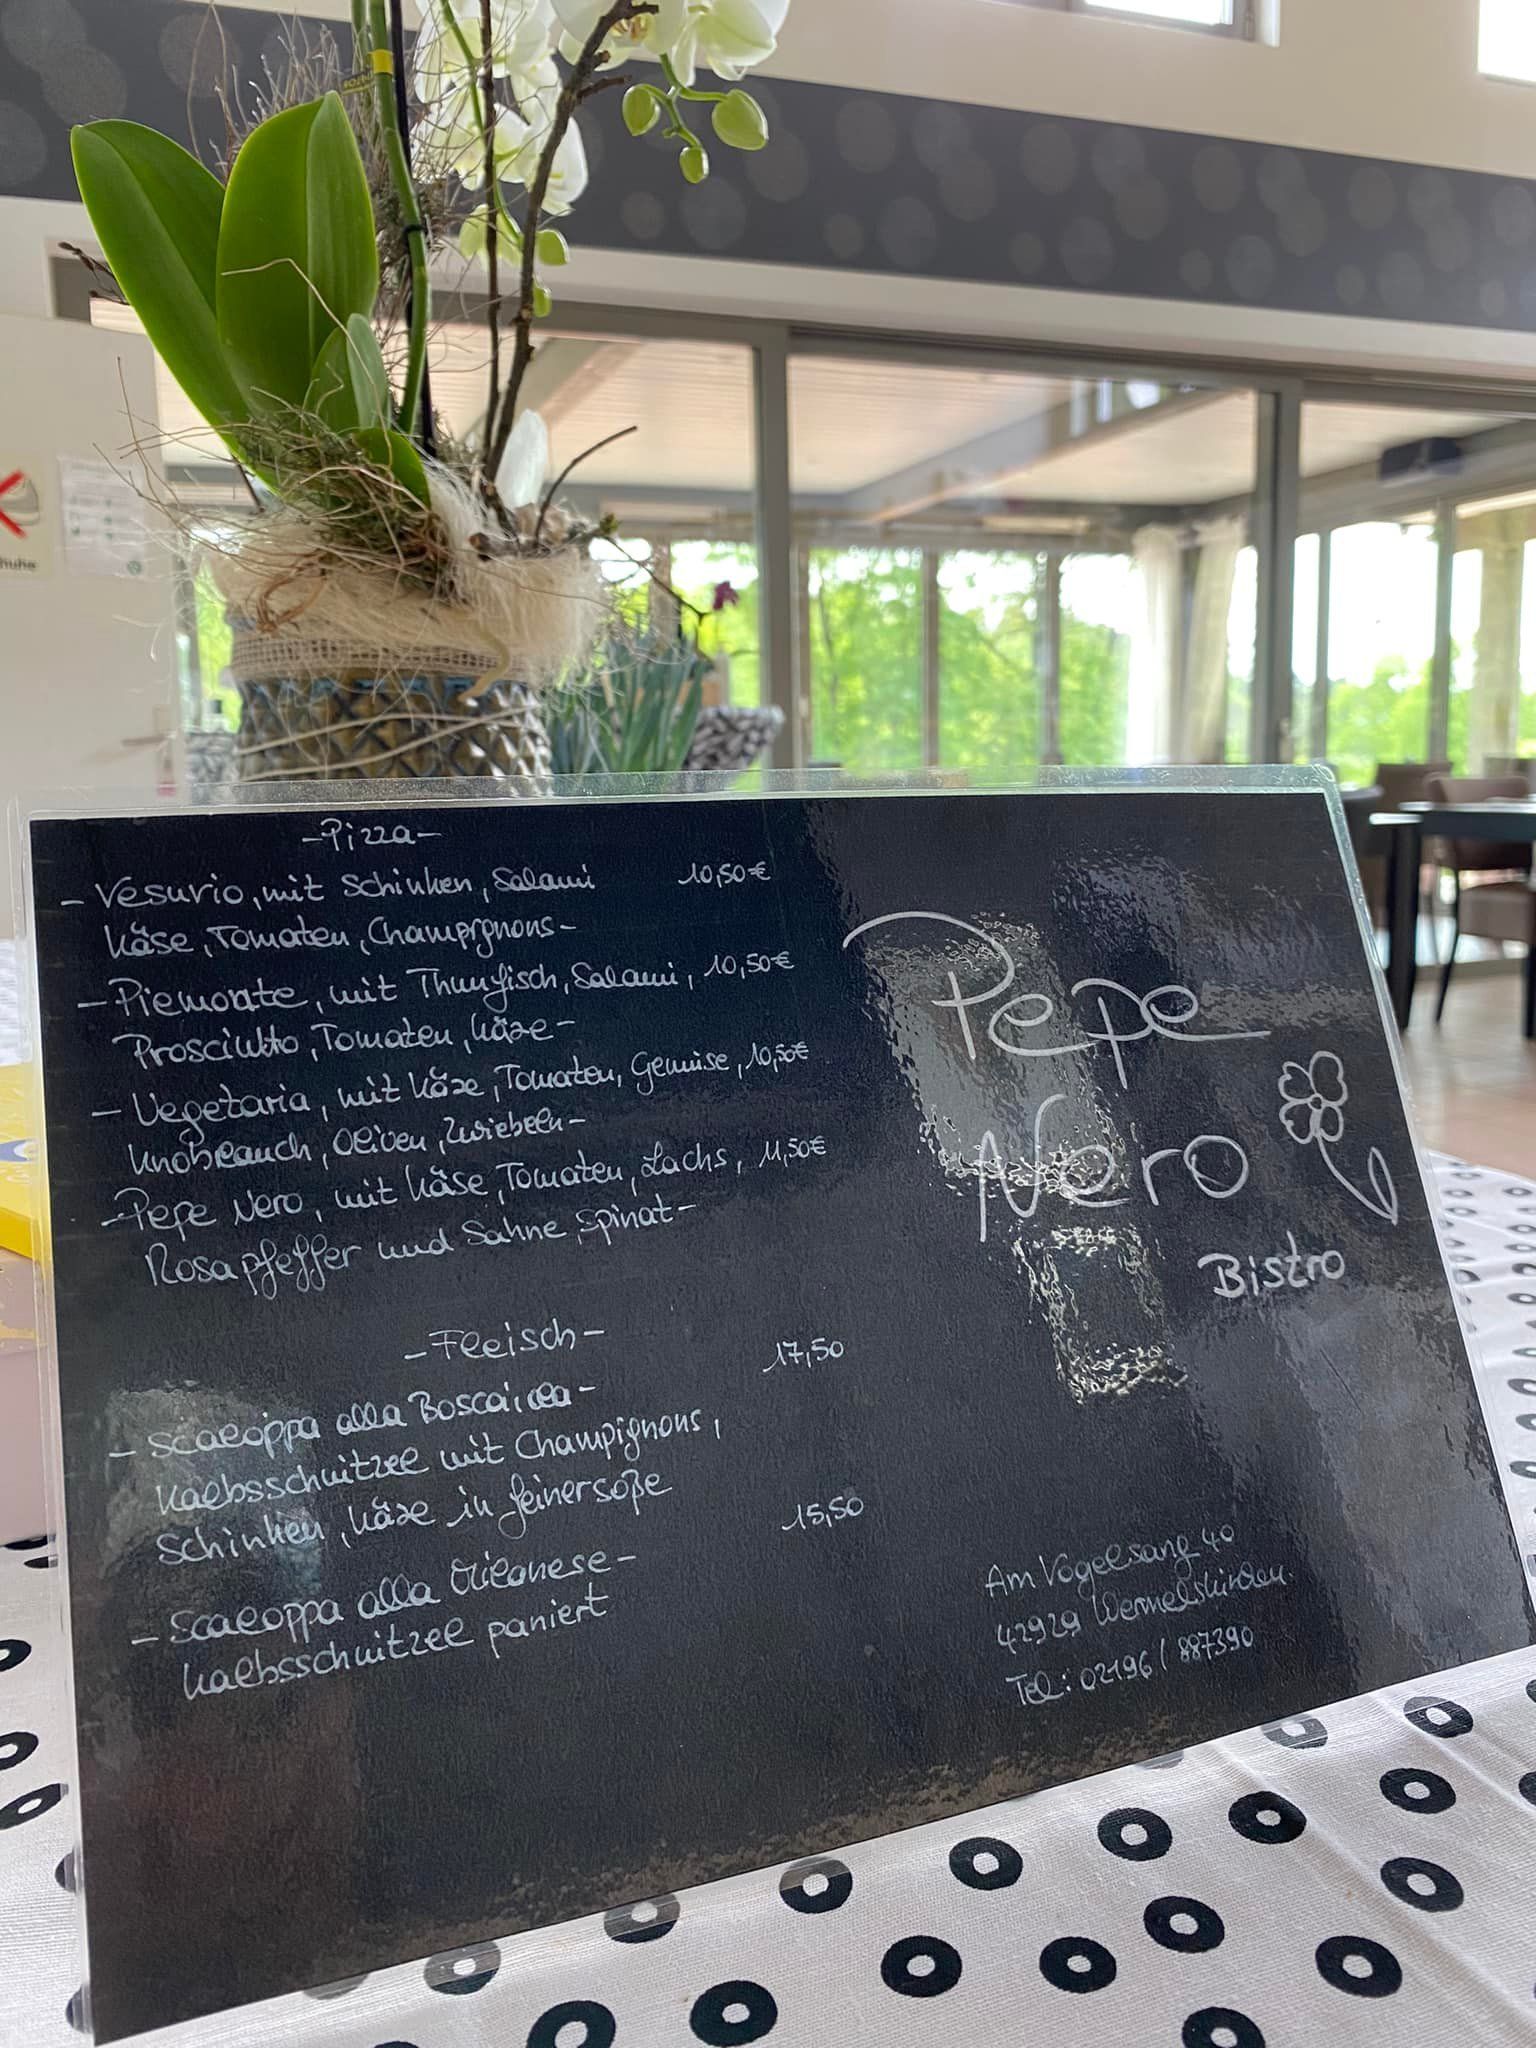 -Pizza-
- Vesuvio, mit Schinken, Salami 10,50€
Käse, Tomaten, Champignons-
- Piemonte, mit Thunfisch, Salami, 10,50€
Prosciutto, Tomaten, Käse-
- Vegetaria, mit Käse, Tomaten, Gemüse, 10,50€
Knoblauch, Oliven, Zwiebeln-
-Pepe Nero, mit Käse, Tomaten, Lachs, 11,50€
Rosapfeffer und Sahne, Spinat-
-Fleisch-
- Scaloppa alla Boscaiola- 17,50
Kalbsschnitzel mit Champignons,
Schinken, Käse in feinersoße
- Scaloppa alla Milanese- 15,50
Kalbsschnitzel paniert
Pepe
Nero
Bistro
Am Vogelsang 40
42929 Wermelskirchen.
Tel: 02196 / 887390